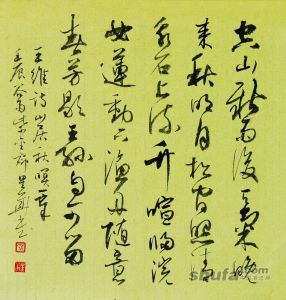 空山新雨後天氣晚
来秋明月松間照清
泉石上流竹喧归浣
女蓮動下漁舟随意
春芳歇王孫自可留
王维詩山居秋暝一章
壬辰